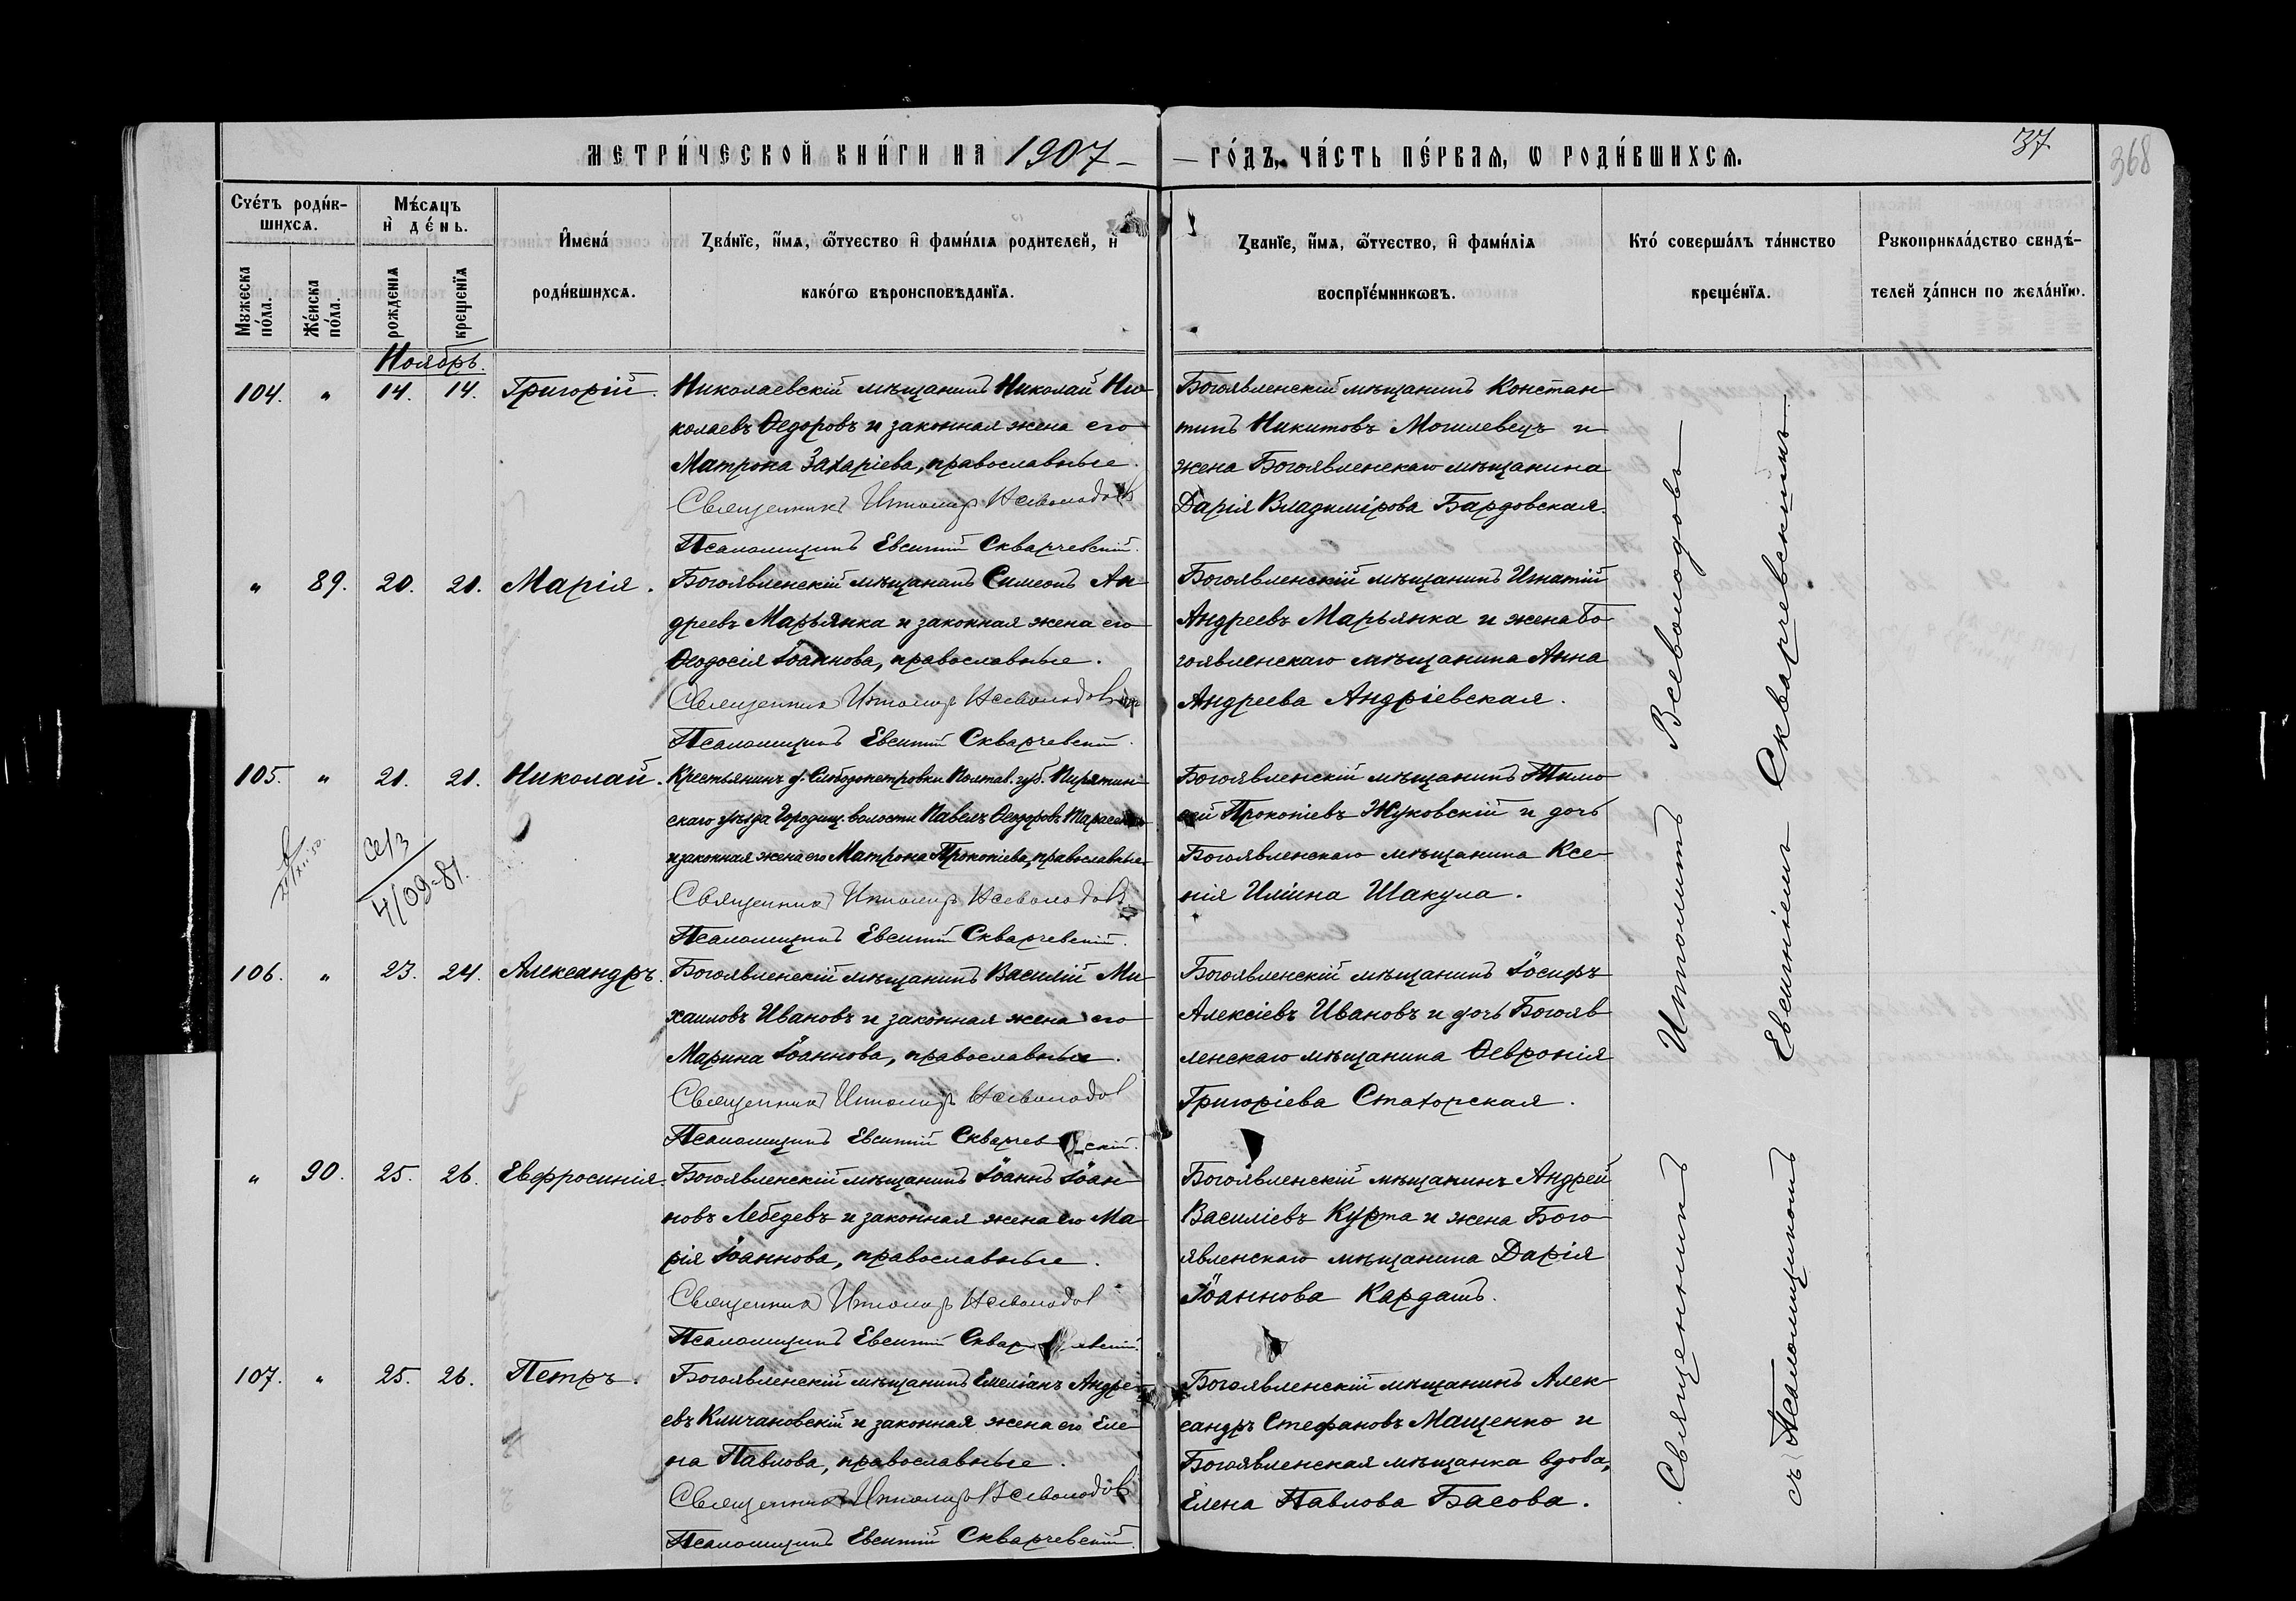 МЕТРИ́ЧЕСКОЙ КНИ́ГИ НА 1907 ГО́ДЪ, ЧА́СТЬ ПЕ́РВАѦ, Ѡ РОДИ́ВШИХСѦ.
37
368
Счéтъ роди́в-
шихсѧ.
Мужеска пóла.
Же́нска пóла.
Мѣ́сѧцъ
и҆ де́нь.
рожденїѧ
крещенїѧ
И҆мена́
роди́вшихсѧ.
Зва́нїе, и҆́мѧ, ѻ҆́тчество и҆ фами́лїѧ родителей, и҆
како́гѡ вѣроисповѣданїѧ.
Зва́нїе, и҆́мѧ, ѻ҆́тчество, и҆ фами́лїѧ
воспрїе́мникѡвъ.
Кто́ соверша́лъ та́инство
креще́нїѧ.
Рукоприкла́дство свидѣ́-
телей за́писи по жела́нїю.
Ноябрь.
104. " 14. 14. Григорій.
Николаевскій мѣщанинъ Николай Ни-
колаевъ Ѳедоровъ и законная жена его
Матрона Захаріева, православные.
Священникъ Ипполитъ Всеволодовъ
Псаломщикъ Евсигній Скварчевскій.
Богоявленскій мѣщанинъ Констан-
тинъ Никитовъ Могилевецъ и
жена Богоявленскаго мѣщанина
Дарія Владимірова Бардовская.
" 89. 20. 21. Марія.
Богоявленскій мѣщанинъ Симеонъ Ан-
дреевъ Марьянка и законная жена его
Ѳеодосія Іоаннова, православные.
Священникъ Ипполитъ Всеволодовъ
Псаломщикъ Евсигній Скварчевскій.
Богоявленскій мѣщанинъ Игнатій
Андреевъ Марьянка и жена Бо-
гоявленскаго мѣщанина Анна
Андреева Андріевская.
105. " 21. 21. Николай.
Крестьянинъ д. Слободопетровки Полтав. губ. Пирятин-
скаго уѣзда Городищ. волости Павелъ Ѳеодоровъ
и законная жена его Матрона Прокопіева, православные
Священникъ Ипполитъ Всеволодовъ
Псаломщикъ Евсигній Скварчевскій.
Богоявленскій мѣщанинъ Тимо-
ѳей Прокопіевъ Жуковскій и дочь
Богоявленскаго мѣщанина Ксе-
нія Иліина Шакула.
106. " 23. 24. Александръ.
Богоявленскій мѣщанинъ Василій Ми-
хаиловъ Ивановъ и законная жена его
Марина Іоаннова, православные.
Священникъ Ипполитъ Всеволодовъ
Псаломщикъ Евсигній Скварчевскій.
Богоявленскій мѣщанинъ Іосифъ
Алексіевъ Ивановъ и дочь Богояв-
ленскаго мѣщанина Ѳевронія
Григоріева Стахорская.
" 90. 25. 26. Евфросинія.
Богоявленскій мѣщанинъ Іоаннъ Іоан-
новъ Лебедевъ и законная жена его Ма-
рія Іоаннова, православные.
Священникъ Ипполитъ Всеволодовъ
Псаломщикъ Евсигній Скварчевскій.
Богоявленскій мѣщанинъ Андрей
Василіевъ Курта и жена Бого-
явленскаго мѣщанина Дарія
Іоаннова Кардашъ.
107. " 25. 26. Петръ.
Богоявленскій мѣщанинъ Емеліанъ Андре-
евъ Кличановскій и законная жена его Еле-
на Павлова, православные.
Священникъ Ипполитъ Всеволодовъ
Псаломщикъ Евсигній Скварчевскій
Богоявленскій мѣщанинъ Алек-
сандръ Стефановъ Мащенко и
Богоявленская мѣщанка вдова,
Елена Павлова Басова.
Священникъ Ипполитъ Всеволодовъ
съ Псаломщикомъ Евсигніемъ Скварчевскимъ